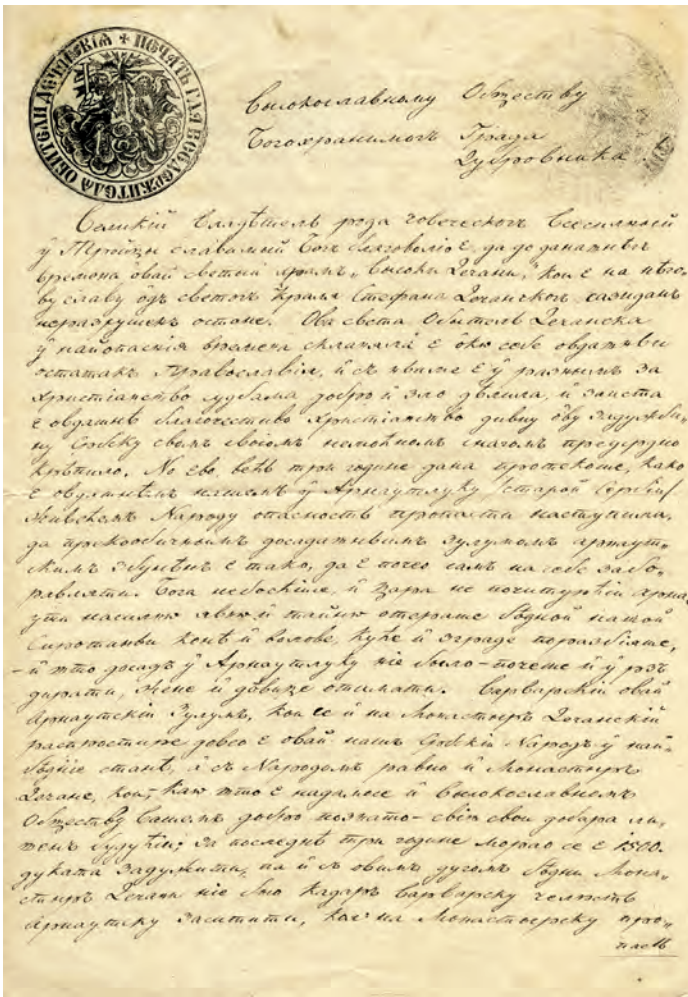 ПЕЧАТЬ ГЛЯ ВОСДЕРЖИТЕЛѦ ОБИТЕЛИ ДЕЧАНСКІѦ
Высокославному Обществу
Богохранимогъ Града
Дубровника!
Великій Владѣтель рода човеческогъ Всесилный
у Тройцы славимый Богъ благоволіо є, да до данашнѣгъ
времена овай светый храмъ „Высоки Дечани,“ кои є на нѣго„
ву славу одъ светогъ Краля Стефана Дечанскогъ сазиданъ
неразрушенъ остане. Ова света Обитель Дечанска
у найопаснія времена склапяла є око себе овдашнѣи
остатакъ Православія, и съ ньиме є у разнымъ за
Христіанство судбама добро и зло дѣлила, и заиста
є овдашнѣ благочестиво Христіанство дивну ову задужби„
ну Србску свимъ своіомъ немоћномъ снагомъ предердно
крѣпило. Но ево већь три године дана протекоше, како
є овдашнѣмъ нашемъ у Арнаутлуку /старой Сербіи/
живећемъ Народу опасность пропасти наступила,
да преко обичнымъ досадашнѣимъ зулумомъ арнаут„
скимъ збунѣнъ є тако, да є почео самъ на себе забо„
равляти. Бога небоећисе, и Цара не почитуюћій Арна„
ути насилно явно и тайно отераше бѣдной нашой
Сиротаньи конѣ и волове, куће и зграде поразбіяше,
– и што досадъ у Арнаутлуку ніе было – почеше и у рэз„
дирати, жене и дѣвице отимати. Варварскій овай
Арнаутскій Зулумъ, кои се и на Монастыръ Дечанскій
распростире довео є овай нашъ Србскій Народъ у най„
бѣдніе станѣ, а съ Народомъ равно и Монастыръ
Дечане, кои, као што є надамосе и Высокославномъ
Обществу Вашемъ добро познато – свію свои добара ли„
шенъ будући, за последнѣ три године морао се є 1500.
дуката задужити, па и съ овимъ дугомъ бѣдни Мона„
стыръ Дечани ніе био кадаръ Варварску челюсть
Арнаутску заситити, коя на Монастырску про„
пасть